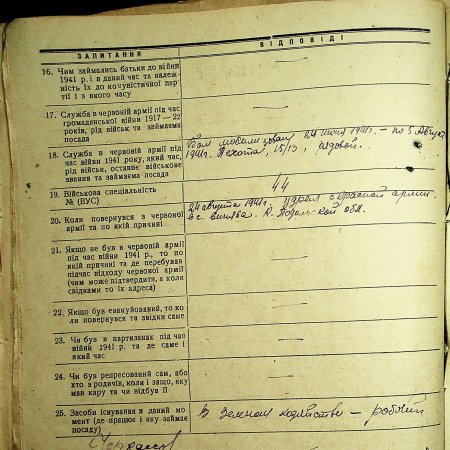 ЗАПИТАННЯ ВІДПОВІДІ
16. Чим займались батьки до війни
1941 р. і в даний час та належ-
ність їх до комуністичної пар-
тії і з якого часу
—
17. Служба в червоній армії під час
громадянської війни 1917 — 22
років, рід військ та займаєма
посада
—
18. Служба в червоній армії під
час війни 1941 року, який час,
рід військ, останнє військове
звання та займаєма посада
Был мобилизован 24 июня 1941г. — по 5 Август
1941г. Пехота, 15/13, рядовой.
19. Військова спеціальність
№ (ВУС)
44
20. Коли повернувся з червоної
армії та по якій причині
24 августа 1941г. удрал с красной армии
в с. К. Подольской обл.
21. Якщо не був в червоній армії
під час війни 1941 р., то по
якій причині та де перебував
підчас відходу червоної армії
(чим може підтвердити, а коли
свідками то їх адреса)
—
22. Якщо був евакуйований, то ко-
ли повернувся та звідки саме
—
23. Чи був в партизанах під час
війни 1941 р. та де саме і
який час
—
24. Чи був репресований сам, або
хто з родичів, коли і защо, яку
мав кару та чи відбув її
—
25. Засоби існування в даний мо-
мент (де працює і яку займає
посаду)
В Зеленом хозяйстве — рабочий